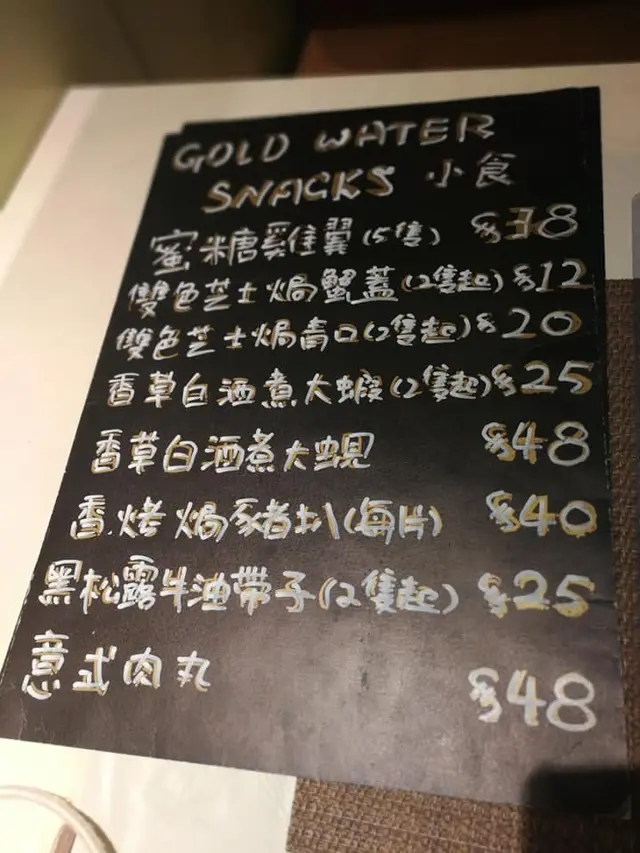 GOLD WATER
SNACKS 小食
蜜糖雞翼(5隻) $38
雙色芝士焗蟹蓋(2隻起) $12
雙色芝士焗青口(2隻起) $20
香草白酒煮大蝦(2隻起) $25
香草白酒煮大蜆 $48
香烤焗豬扒(每片) $40
黑松露牛油帶子(2隻起) $25
意式肉丸 $48